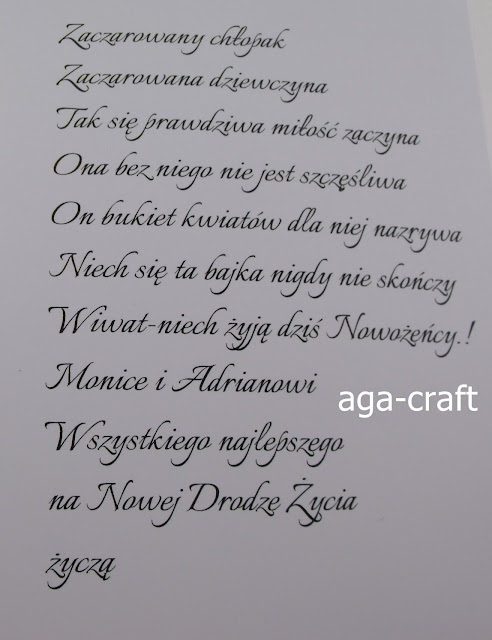 Zaczarowany chłopak
Zaczarowana dziewczyna
Tak się prawdziwa miłość zaczyna
Ona bez niego nie jest szczęśliwa
On bukiet kwiatów dla niej nazrywa
Niech się ta bajka nigdy nie skończy
Wiwat-niech żyją dziś Nowożeńcy.!
Monice i Adrianowi
aga-craft
Wszystkiego najlepszego
na Nowej Drodze Życia
życzą